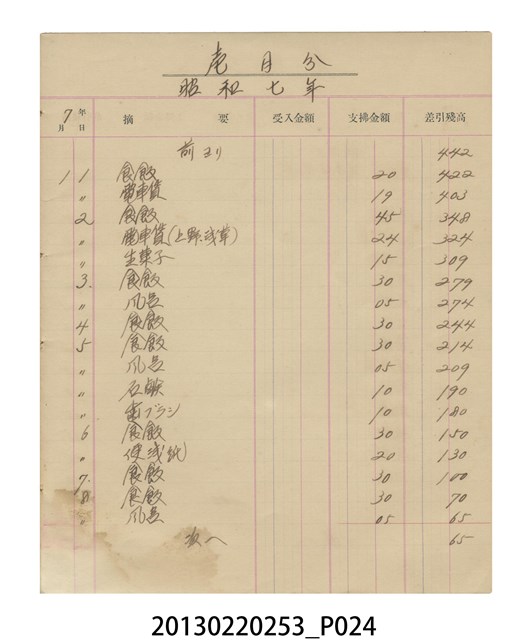 壱月分
昭和七年
7年
月 日 摘要 受入金額 支拂金額 差引残高
前ヨリ 442
1 1 食飯 20 422
〃 電車賃 19 403
2 食飯 45 348
〃 電車賃(上野.浅草) 24 324
〃 生菓子 15 309
3. 食飯 30 279
〃 風呂 05 274
4 食飯 30 244
5 食飯 30 214
〃 風呂 05 209
〃 石鹸 10 190
〃 歯ブラシ 10 180
6 食飯 30 150
〃 便浅(紙) 20 130
7. 食飯 30 100
8. 食飯 30 70
〃 風呂 05 65
次へ 65
20130220253_P024